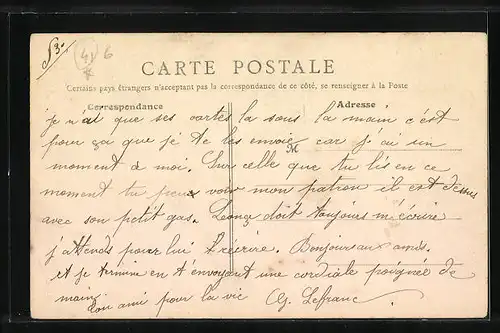 53.
45 6
CARTE POSTALE
Certains pays étrangers n'acceptant pas la correspondance de ce côté, se renseigner à la Poste
Correspondance
Adresse
M
je n'ai que ses cartes la sous la main c'est
pour ça que je te les envoie car j'ai un
moment de moi. Sur celle que tu lis en ce
moment tu peux voir mon patron il est dessus
avec son petit gas. Leonce doit toujours m'écrire
j'attends pour lui récrire. Bonjour aux amis.
et je termine en t'envoyant une cordiale poignée de
main
ton ami pour la vie G. Lefranc